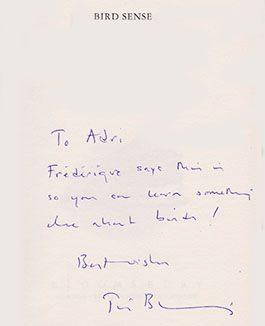 BIRD SENSE
To Adri
Frédérique says this is
so you can learn something
else about birds!
Best wishes
Tim B